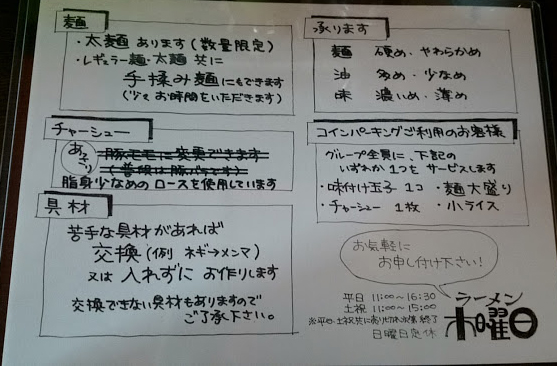 麺
・太麺 あります(数量限定)
・レギュラー麺・太麺 共に
手揉み麺にもできます
(少々お時間をいただきます)
チャーシュー
あっさり
豚モモに変更できます
(普段は豚バラです)
脂身少なめのロースを使用しています
具材
苦手な具材があれば
交換(例 ネギ→メンマ)
又は 入れずに お作りします
交換できない具材もありますので
ご了承下さい。
承ります
麺 硬め・やわらかめ
油 多め・少なめ
味 濃いめ・薄め
コインパーキングご利用のお客様
グループ全員に、下記の
いずれか1つをサービスします
・味付け玉子 1コ ・麺大盛り
・チャーシュー 1枚 ・小ライス
お気軽に
お申し付け下さい!
平日 11:00~16:30
土祝 11:00~15:00
※平日・土祝共に売り切れ次第終了
日曜日定休
ラーメン
木曜日